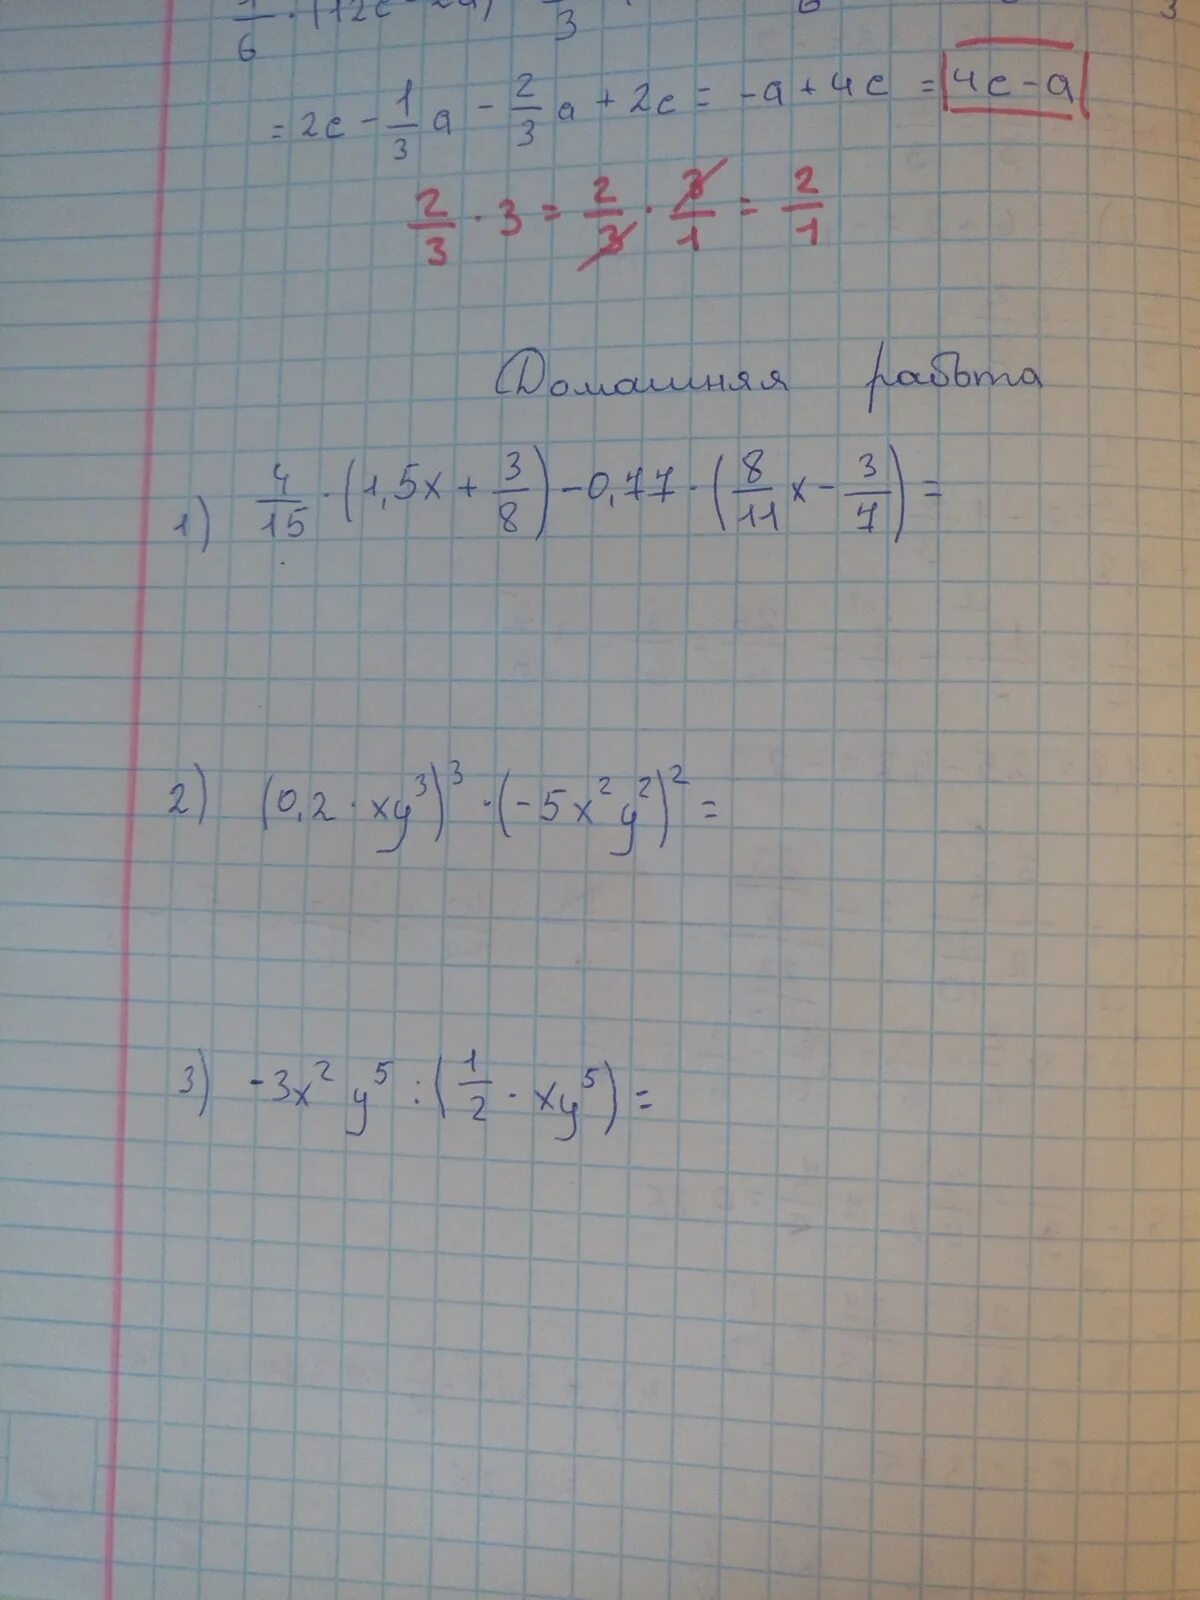 = 2c - 1/3 a - 2/3 a + 2c = -a + 4c = 4c - a
2/3 · 3 = 2/3 · 3/1 = 2/1
Домашняя работа
1) 4/15 · (1,5x + 3/8) - 0,77 · (8/11 x - 3/7) =
2) (0,2 · xy³)³ · (-5x²y²)² =
3) -3x² y⁵ : (1/2 · xy⁵) =